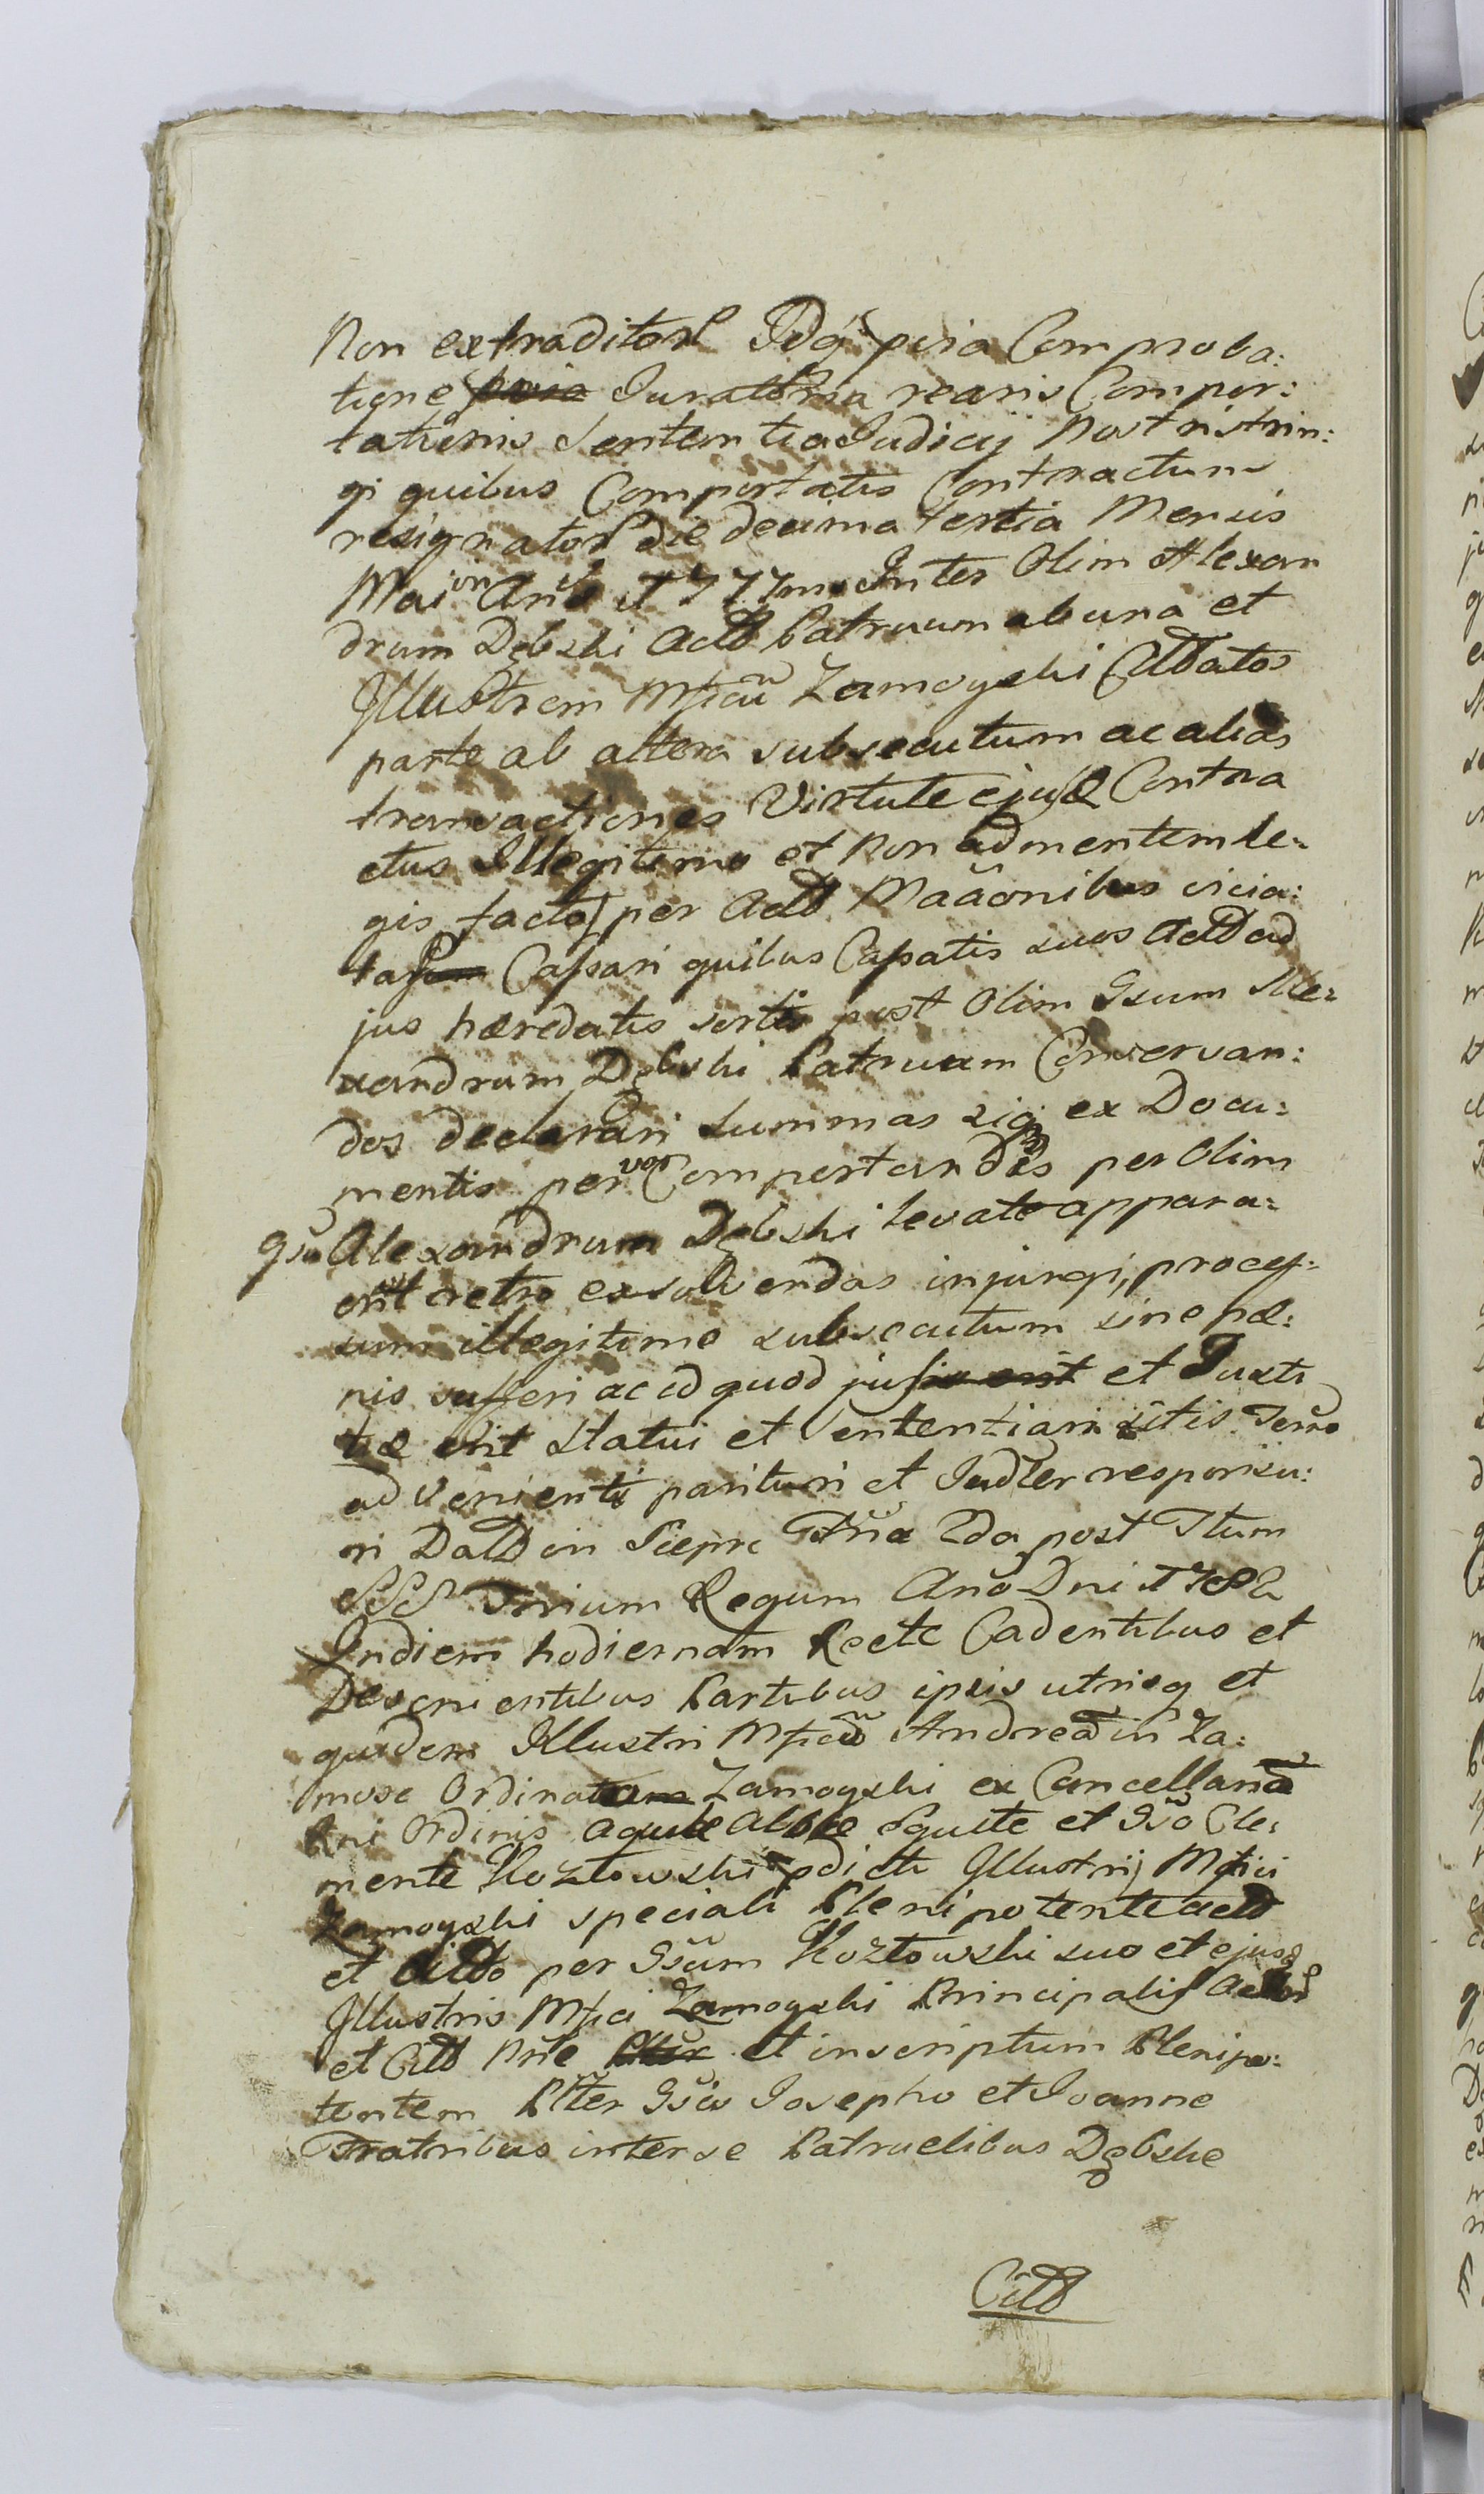 Non extraditorl Idq; pvia Comproba:
tione pvia Juratoria rearis Compor:
tationis Sententia Judicij Nostri strin:
gi quibus Comportatis Contractum
resignator die decima tertia Mensis
Maij in Anō 1777mo Inter Olim Alexan
drum Dębski Actō Patruum ab una et
Illustrem Mficū Zamoyski Cittatos
parte ab altera subsecutum ac alias
transactiones Virtute ejusd Contra
ctus Illegitime et non ad mentem le-
gis factas per Actō Mãaonibus vicia:
tas Cassari quibus Cassatis suos Actō ad
jus hæredatis sortis post Olim Gsum Ale-
xandrum Dębski Patruum Conservan:
dos declarari Summas siq; ex Docu:
mentis per vos Comportandis per Olim
Gsū Alexandrum Dębski levato appara-
erit retro exsolvendas injungi, proces-
sum illegitime subsecutum sine pæ:
nis sufferi ac id quod jus et Justi
tiæ erit statui et Sententiari sitis Termo
advenienti parituri et Judler responsu:
ri Datō in Siepre Fria 2da post Ftum
SSS Trium Regum Ano Dni 1782
In diem hodiernam Recte Cadentibus et
Devenientibus Partibus ipsis utrisq et
quidem Illustri Mfico Andrea in Za:
mosc Ordinatam Zamoyski ex Cancellaria
Rni Ordinis Aquile Albæ Equite et Gso Cle:
mente Kozłowski pdicti Illustrij Mfici
Zamoyski speciali Plenipotente actō
et Cittō per Gsum Kozłowski suo et ejusd
Illustris Mfici Zamoyski Principalis Actō
et Cittō Nñe et inscriptum Plenipo:
tentem Plter Gsis Josepho et Joanne
Fratribus inter se Patruelibus Dębskie
Cittō